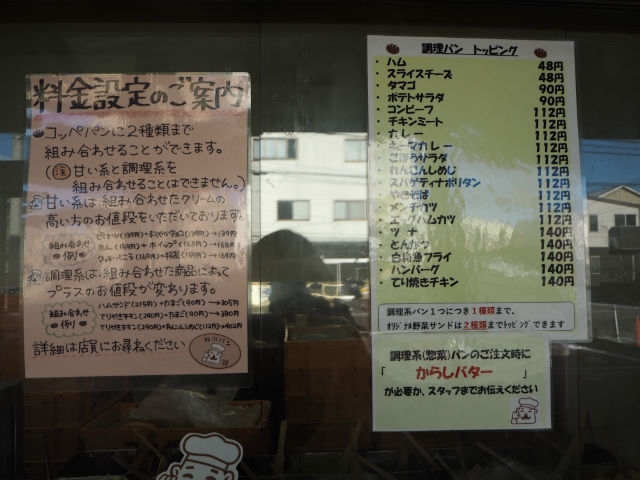 料金設定のご案内
コッペパンに2種類まで
組み合わせることができます。
(注 甘い系と調理系を
組み合わせることはできません。)
甘い系は、組み合わせたクリームの
高い方のお値段をいただいております。
組み合わせ
例
調理系は、組み合わせた商品によって
プラスのお値段が変わります。
組み合わせ
例
ハムサンド(215円)+たまご(90円)→305円
てりやきチキン(290円)+たまご(90円)→380円
てりやきチキン(290円)+れんこんしめじ(112円)→402円
詳細は店員にお尋ねください
調理パン トッピング
・ハム 48円
・スライスチーズ 48円
・タマゴ 90円
・ポテトサラダ 90円
・コンビーフ 112円
・チキンミート 112円
・カレー 112円
・キーマカレー 112円
・ごぼうサラダ 112円
・れんこんしめじ 112円
・スパゲティナポリタン 112円
・やきそば 112円
・メンチカツ 112円
・エッグハムカツ 112円
・ツナ 140円
・とんかつ 140円
・白身魚フライ 140円
・ハンバーグ 140円
・てり焼きチキン 140円
調理系パン1つにつき1種類まで、
オリジナル野菜サンドは2種類までトッピングできます
調理系(惣菜)パンのご注文時に
「 からしバター 」
が必要か、スタッフまでお伝えください